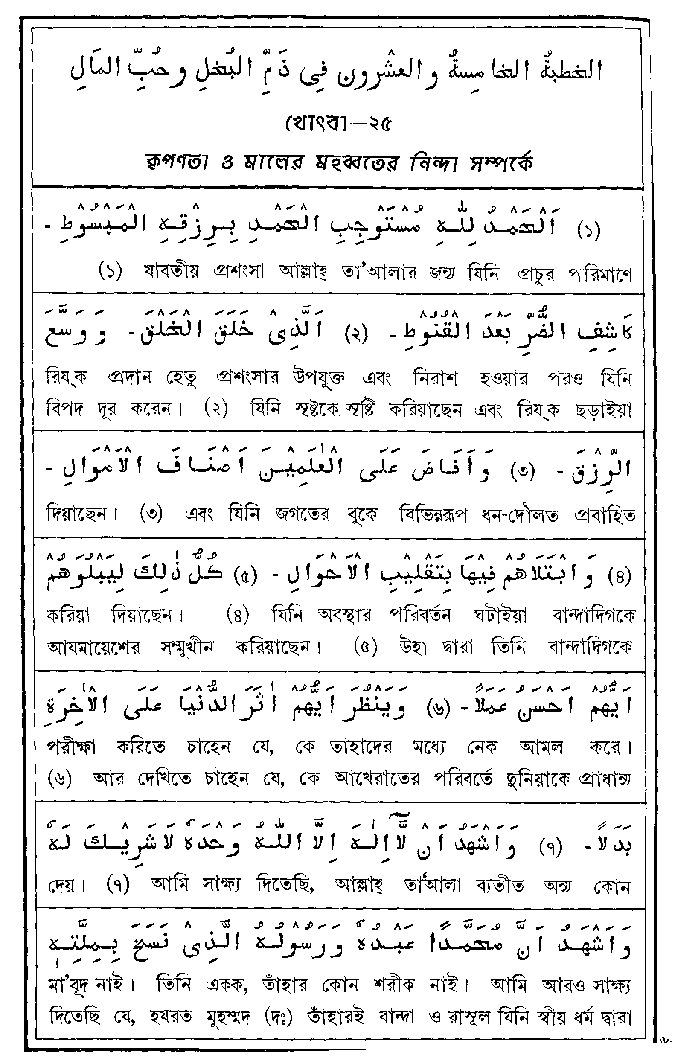 الخطبةُ الخامسةُ والعشرون في ذَمِّ البُخلِ وحُبِّ المَالِ
খোৎবা—২৫
কৃপণতা ও মালের মহব্বতের নিন্দা সম্পর্কে
(১) اَلْحَمْدُ لِلّٰهِ مُسْتَوْجِبِ الْحَمْدِ بِرِزْقِهِ الْمَبْسُوْطِ -
(১) যাবতীয় প্রশংসা আল্লাহ্ তা'আলার জন্য যিনি প্রচুর পরিমাণে
كَاشِفِ الضُّرِّ بَعْدَ الْقُنُوْطِ - (২) اَلَّذِىْ خَلَقَ الْخَلْقَ - وَوَسَّعَ
রিয্‌ক প্রদান হেতু প্রশংসার উপযুক্ত এবং নিরাশ হওয়ার পরও যিনি
বিপদ দূর করেন। (২) যিনি সৃষ্টকে সৃষ্টি করিয়াছেন এবং রিয্‌ক ছড়াইয়া
الرِّزْقَ - (৩) وَاَفَاضَ عَلَى الْعٰلَمِيْنَ اَصْنَافَ الْاَمْوَالِ -
দিয়াছেন। (৩) এবং যিনি জগতের বুকে বিভিন্নরূপ ধন-দৌলত প্রবাহিত
(৪) وَابْتَلَاهُمْ فِيْهَا بِتَقْلِيْبِ الْاَحْوَالِ - (৫) كُلُّ ذٰلِكَ لِيَبْلُوَهُمْ
করিয়া দিয়াছেন। (৪) যিনি অবস্থার পরিবর্তন ঘটাইয়া বান্দাদিগকে
আযমায়েশের সম্মুখীন করিয়াছেন। (৫) উহা দ্বারা তিনি বান্দাদিগকে
اَيُّهُمْ اَحْسَنُ عَمَلًا - (৬) وَيَنْظُرَ اَيُّهُمْ اٰثَرَ الدُّنْيَا عَلَى الْاٰخِرَةِ
পরীক্ষা করিতে চাহেন যে, কে তাহাদের মধ্যে নেক আমল করে।
(৬) আর দেখিতে চাহেন যে, কে আখেরাতের পরিবর্তে দুনিয়াকে প্রাধান্য
بَدَلًا - (৭) وَاَشْهَدُ اَنْ لَّآ اِلٰهَ اِلَّا اللّٰهُ وَحْدَهٗ لَا شَرِيْكَ لَهٗ
দেয়। (৭) আমি সাক্ষ্য দিতেছি, আল্লাহ্ তা'আলা ব্যতীত অন্য কোন
وَاَشْهَدُ اَنَّ مُحَمَّدًا عَبْدُهٗ وَرَسُوْلُهُ الَّذِىْ نَسَخَ بِمِلَّتِهٖ
মা'বূদ নাই। তিনি একক, তাঁহার কোন শরীক নাই। আমি আরও সাক্ষ্য
দিতেছি যে, হযরত মুহম্মদ (দঃ) তাঁহারই বান্দা ও রাসূল যিনি স্বীয় ধর্ম দ্বারা